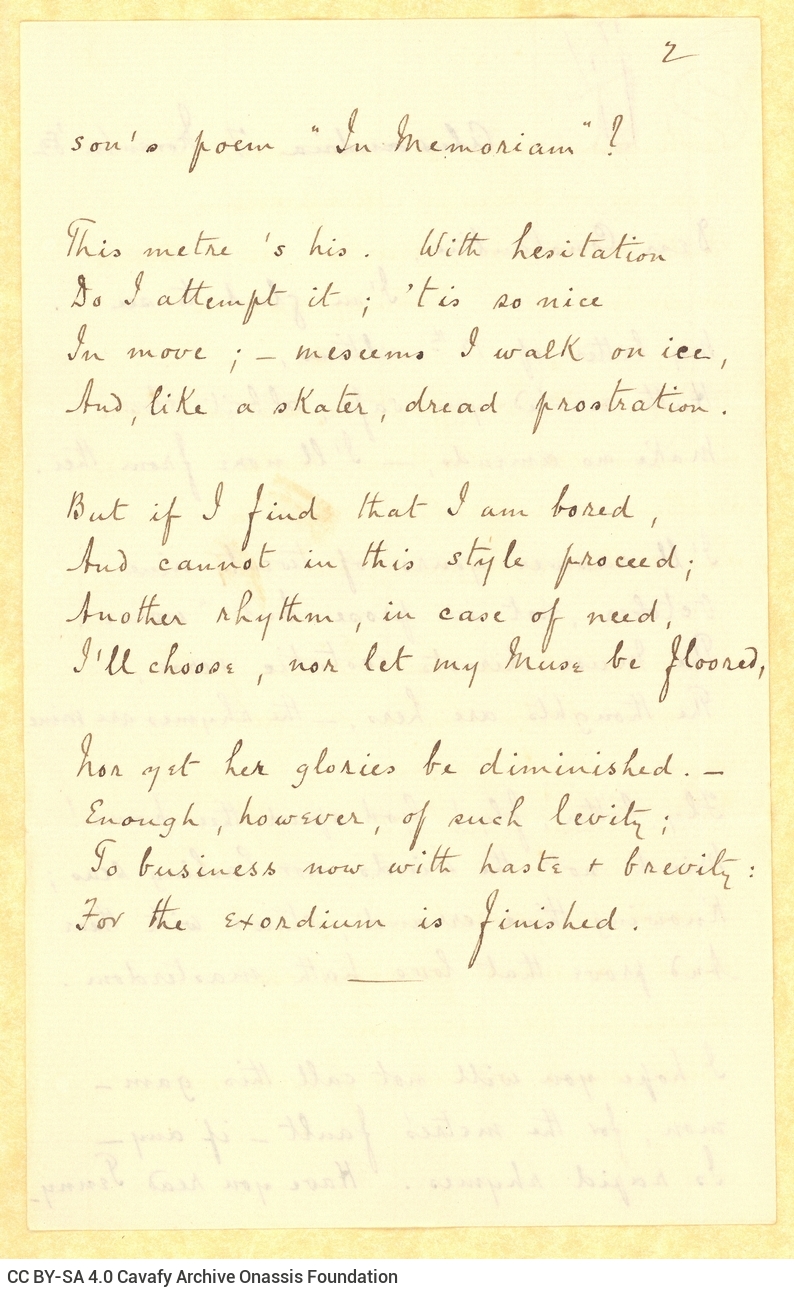 2
son's poem "In Memoriam"?
This metre 's his. With hesitation
Do I attempt it; 'tis so nice
In move; – meseems I walk on ice,
And, like a skater, dread prostration.
But if I find that I am bored,
And cannot in this style proceed;
Another rhythm, in case of need,
I'll choose, nor let my Muse be floored,
Nor yet her glories be diminished. –
Enough, however, of such levity;
To business now with haste + brevity:
For the exordium is finished.
CC BY-SA 4.0 Cavafy Archive Onassis Foundation